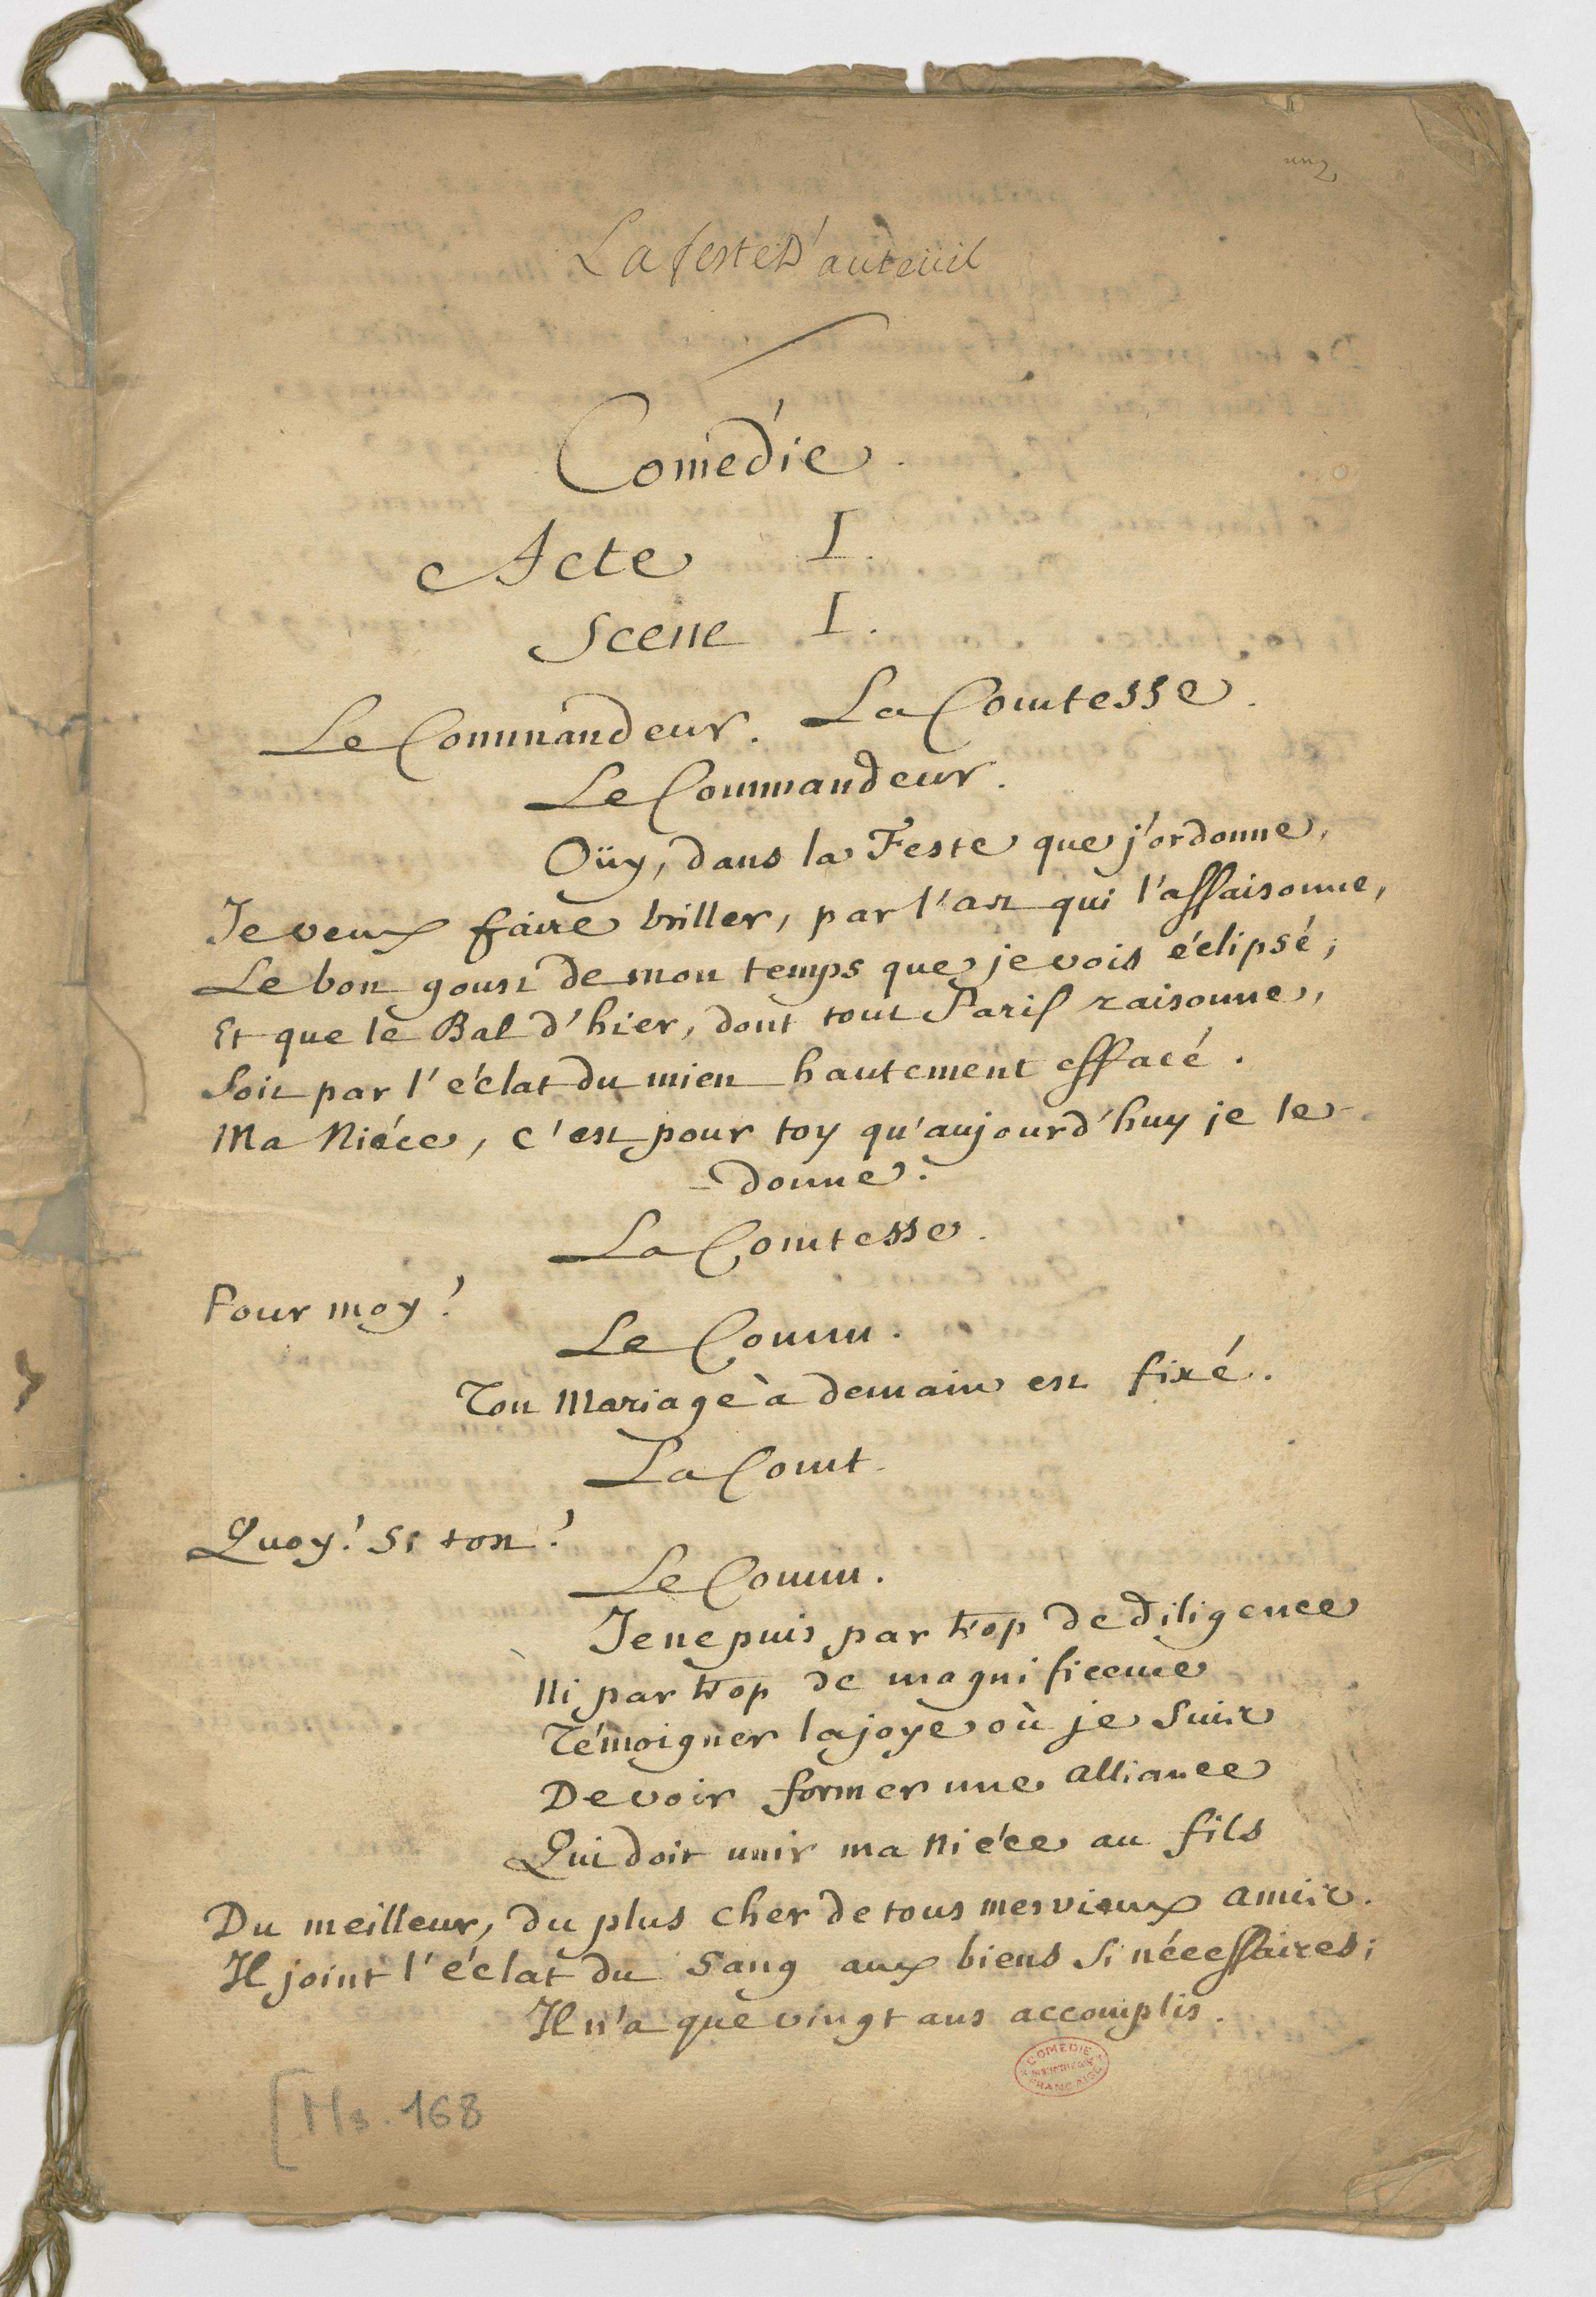 La feste D'auteüil
Comédie.
Acte I.
Scene I.
Le Commandeur. La Comtesse.
Le Commandeur.
Oüy, dans la Feste que j'ordonne,
Je veux faire briller, par l'art qui l'assaisonne,
Le bon goust de mon temps que je vois éclipsé;
Et que le Bal d'hier, dont tout Paris raisonne,
Soit par l'éclat du mien hautement effacé.
Ma Niéce, c'est pour toy qu'aujourd'huy je le
donne.
La Comtesse.
Pour moy!
Le Comm.
Ton Mariage à demain est fixé.
La Comt.
Quoy! Si tost!
Le Comm.
Je ne puis par trop de diligence
Ni par trop de magnificence
Témoigner la joye où je suis
De voir former une alliance
Qui doit unir ma Niéce au fils
Du meilleur, du plus cher de tous mes vieux amis.
Il joint l'éclat du Sang aux biens si nécessaires;
Il n'a que vingt ans accomplis.
COMEDIE
FRANCAISE
[Ms. 168